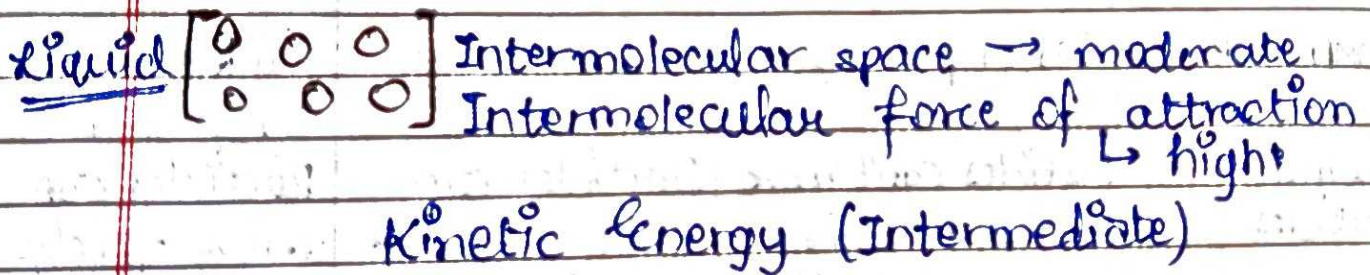 Liquid Intermolecular space → moderate
Intermolecular force of attraction
↳ high
Kinetic Energy (Intermediate)